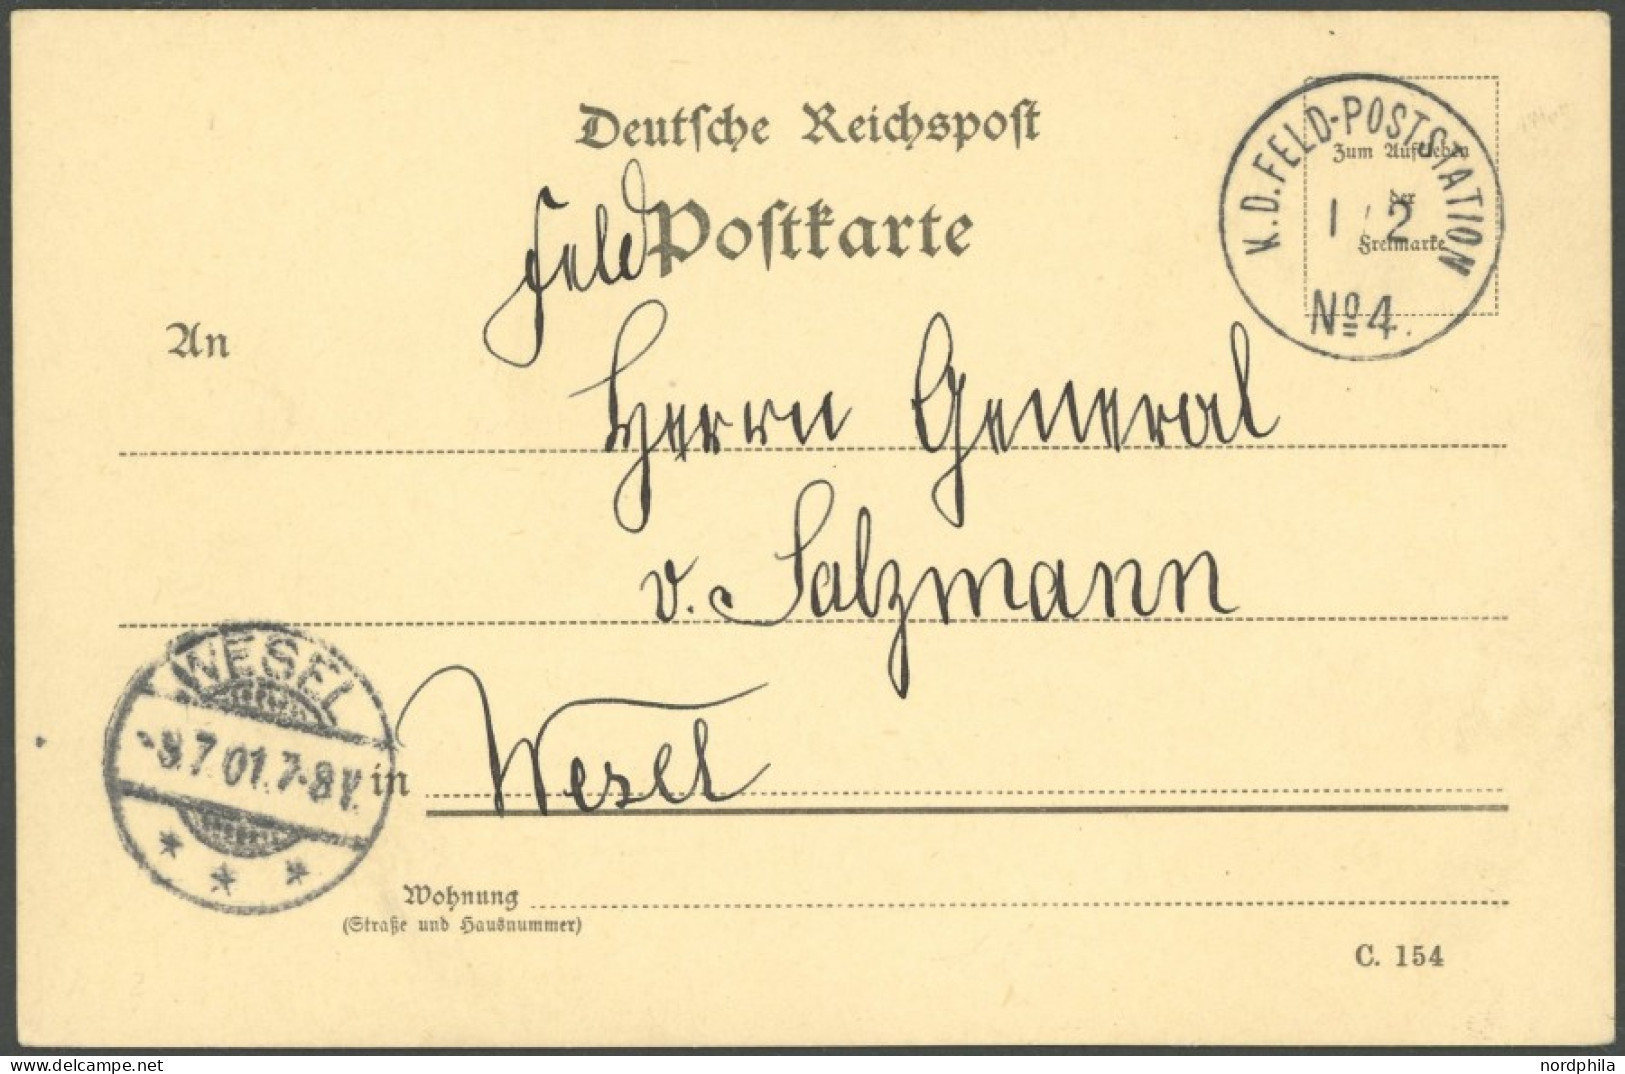 Deutsche Reichspost
Feld Postkarte
K.D. FELD-POSTSTATION
1/2
No 4.
Zum Aufkleben
der
Freimarke
An
Herrn General
v. Salzmann
WESEL
7.01.7-8V.
in Wesel
* * *
Wohnung
(Straße und Hausnummer)
C. 154
www.delcampe.net
nordphila